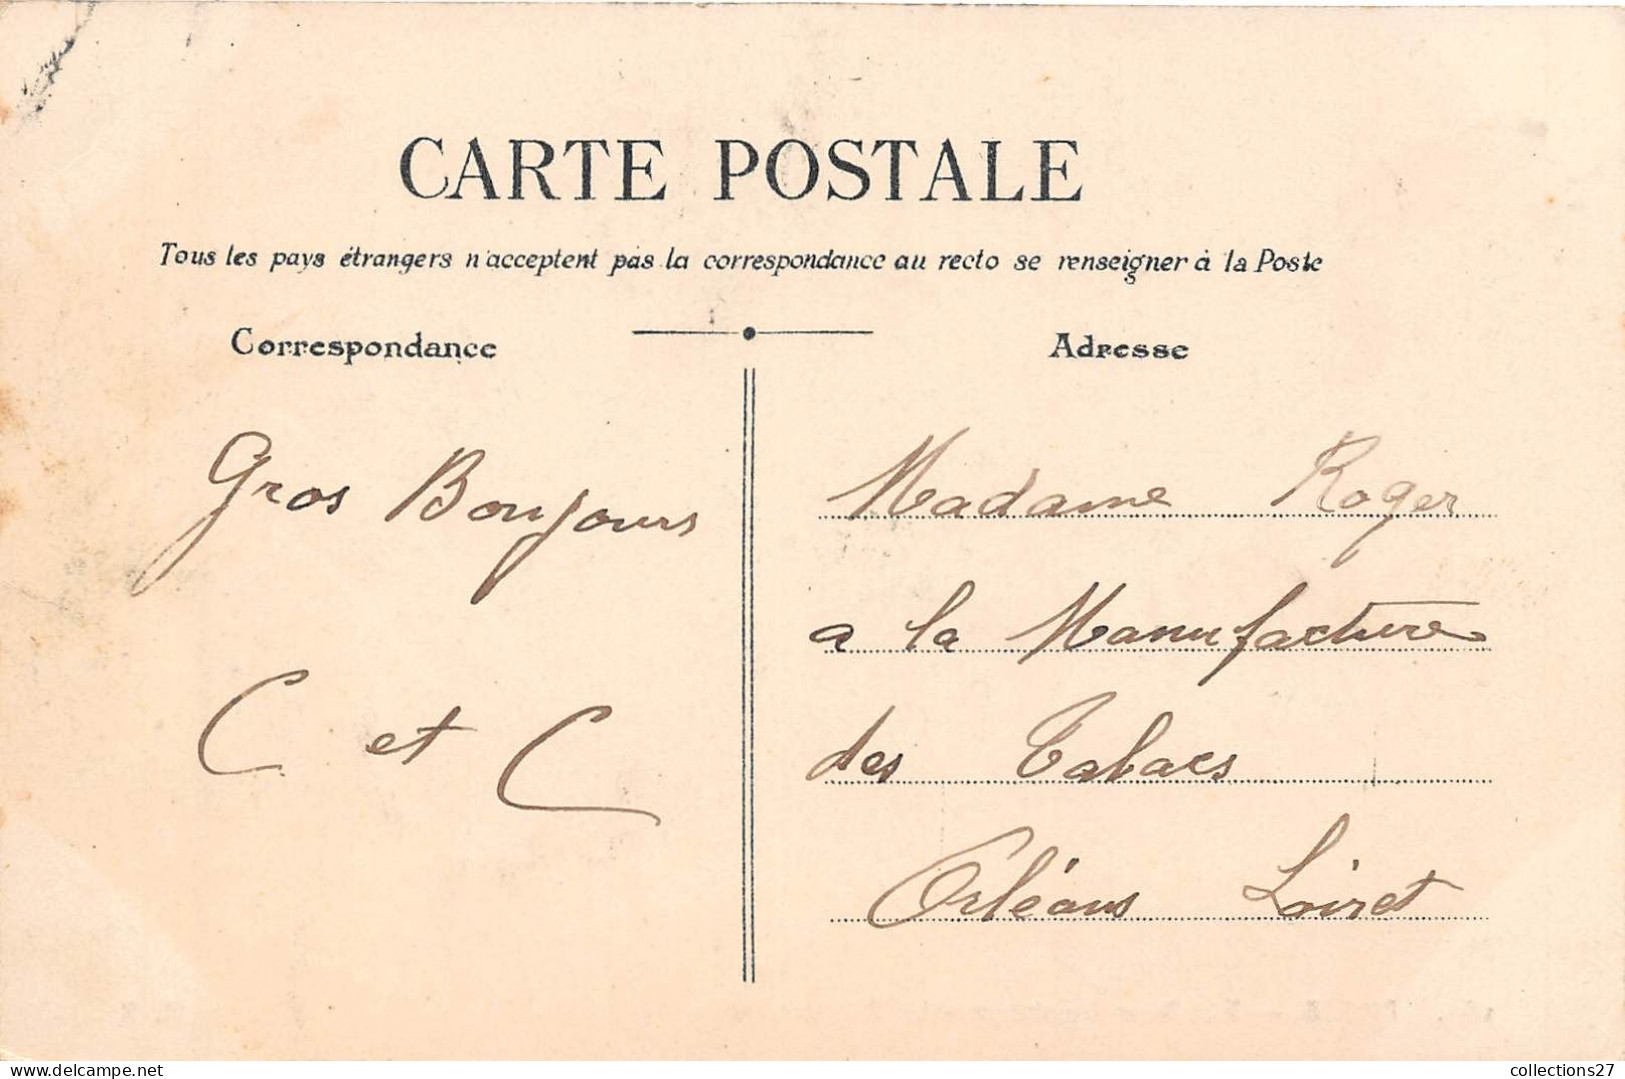 CARTE POSTALE
Tous les pays étrangers n'acceptent pas la correspondance au recto se renseigner à la Poste
Correspondance
Adresse
Gros Bonjours
C et C
Madame Roger
a la Manufacture
des Tabacs
Orléans Loiret
collections27